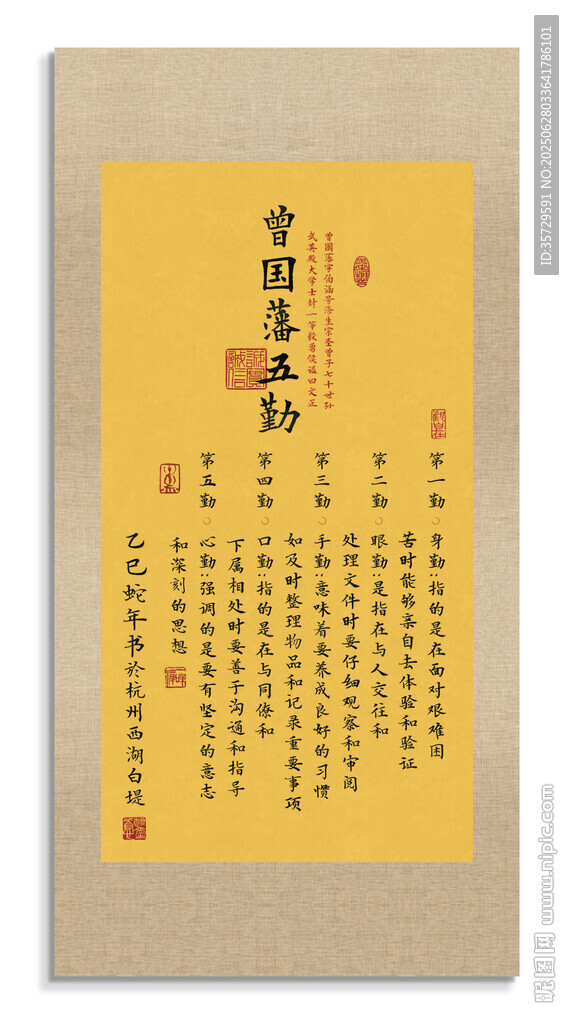 曾国藩五勤
曾国藩字伯涵号涤生宗圣曾子七十世孙
武英殿大学士封一等毅勇侯谥曰文正
第一勤
身勤:指的是在面对艰难困
苦时能够亲自去体验和验证
第二勤
眼勤:是指在与人交往和
处理文件时要仔细观察和审阅
第三勤
手勤:意味着要养成良好的习惯
如及时整理物品和记录重要事项
第四勤
口勤:指的是在与同僚和
下属相处时要善于沟通和指导
第五勤
心勤:强调的是要有坚定的意志
和深刻的思想
乙巳蛇年书於杭州西湖白堤
ID:35729591 NO:20250628033641786101
昵图网 www.nipic.com